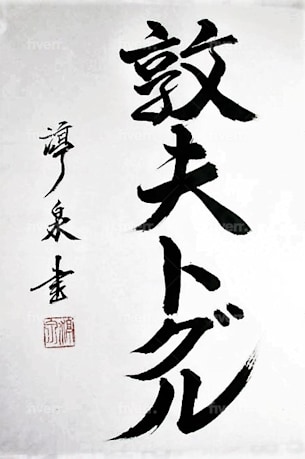 敦夫トグル
諄泉書